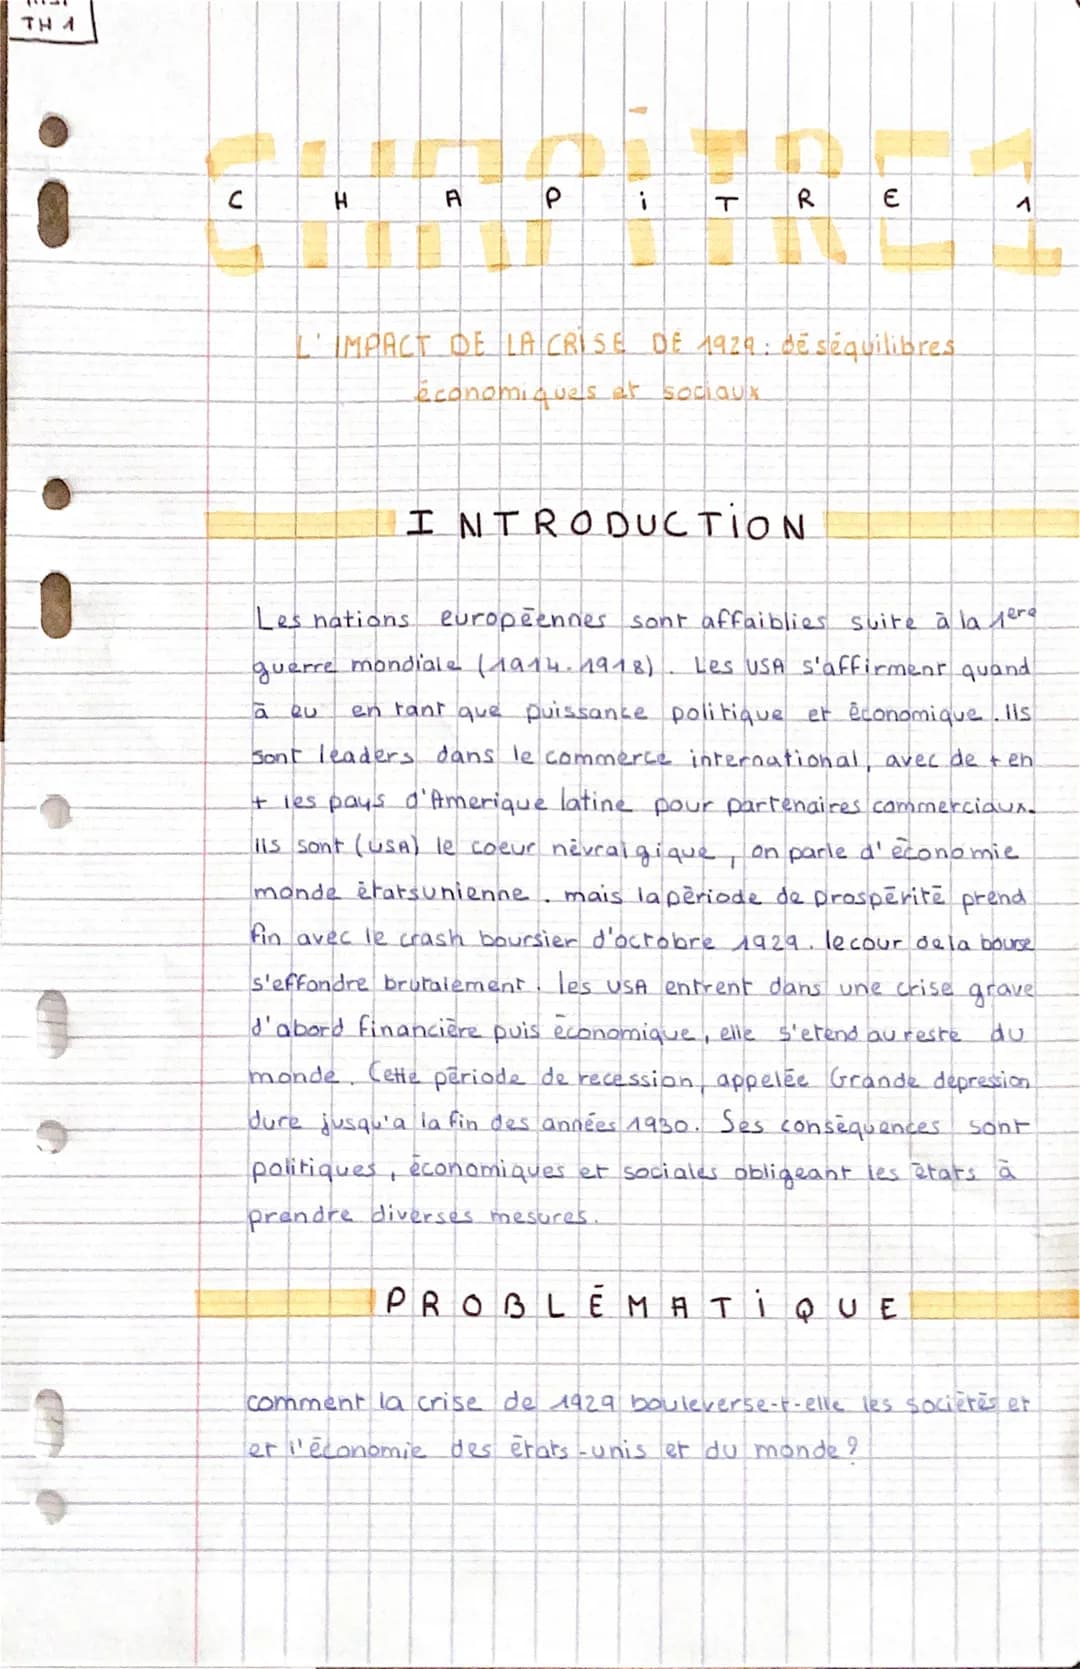 TH 1
CHAPiTRE 1
C H A P i T R E 1
L'IMPACT DE LA CRiSE DE 1929 : déséquilibres
économiques et sociaux
INTRODUCTiON
Les nations européennes sont affaiblies suite à la 1ere
guerre mondiale (1914-1918). Les USA s'affirment quand
à eu en tant que puissance politique et économique. Ils
sont leaders dans le commerce international, avec de + en
+ les pays d'Amerique latine pour partenaires commerciaux.
Ils sont (USA) le coeur névralgique, on parle d'économie
monde étatsunienne. mais la période de prospérité prend
fin avec le crash boursier d'octobre 1929. le cour de la bourse
s'effondre brutalement. les USA entrent dans une crise grave
d'abord financière puis économique, elle s'etend au reste du
monde. Cette période de recession, appelée Grande depression
dure jusqu'a la fin des années 1930. Ses conséquences sont
politiques, économiques et sociales obligeant les états à
prendre diverses mesures.
PROBLÉMATiQUE
comment la crise de 1929 bouleverse-t-elle les sociétés et
et l'économie des états-unis et du monde ?